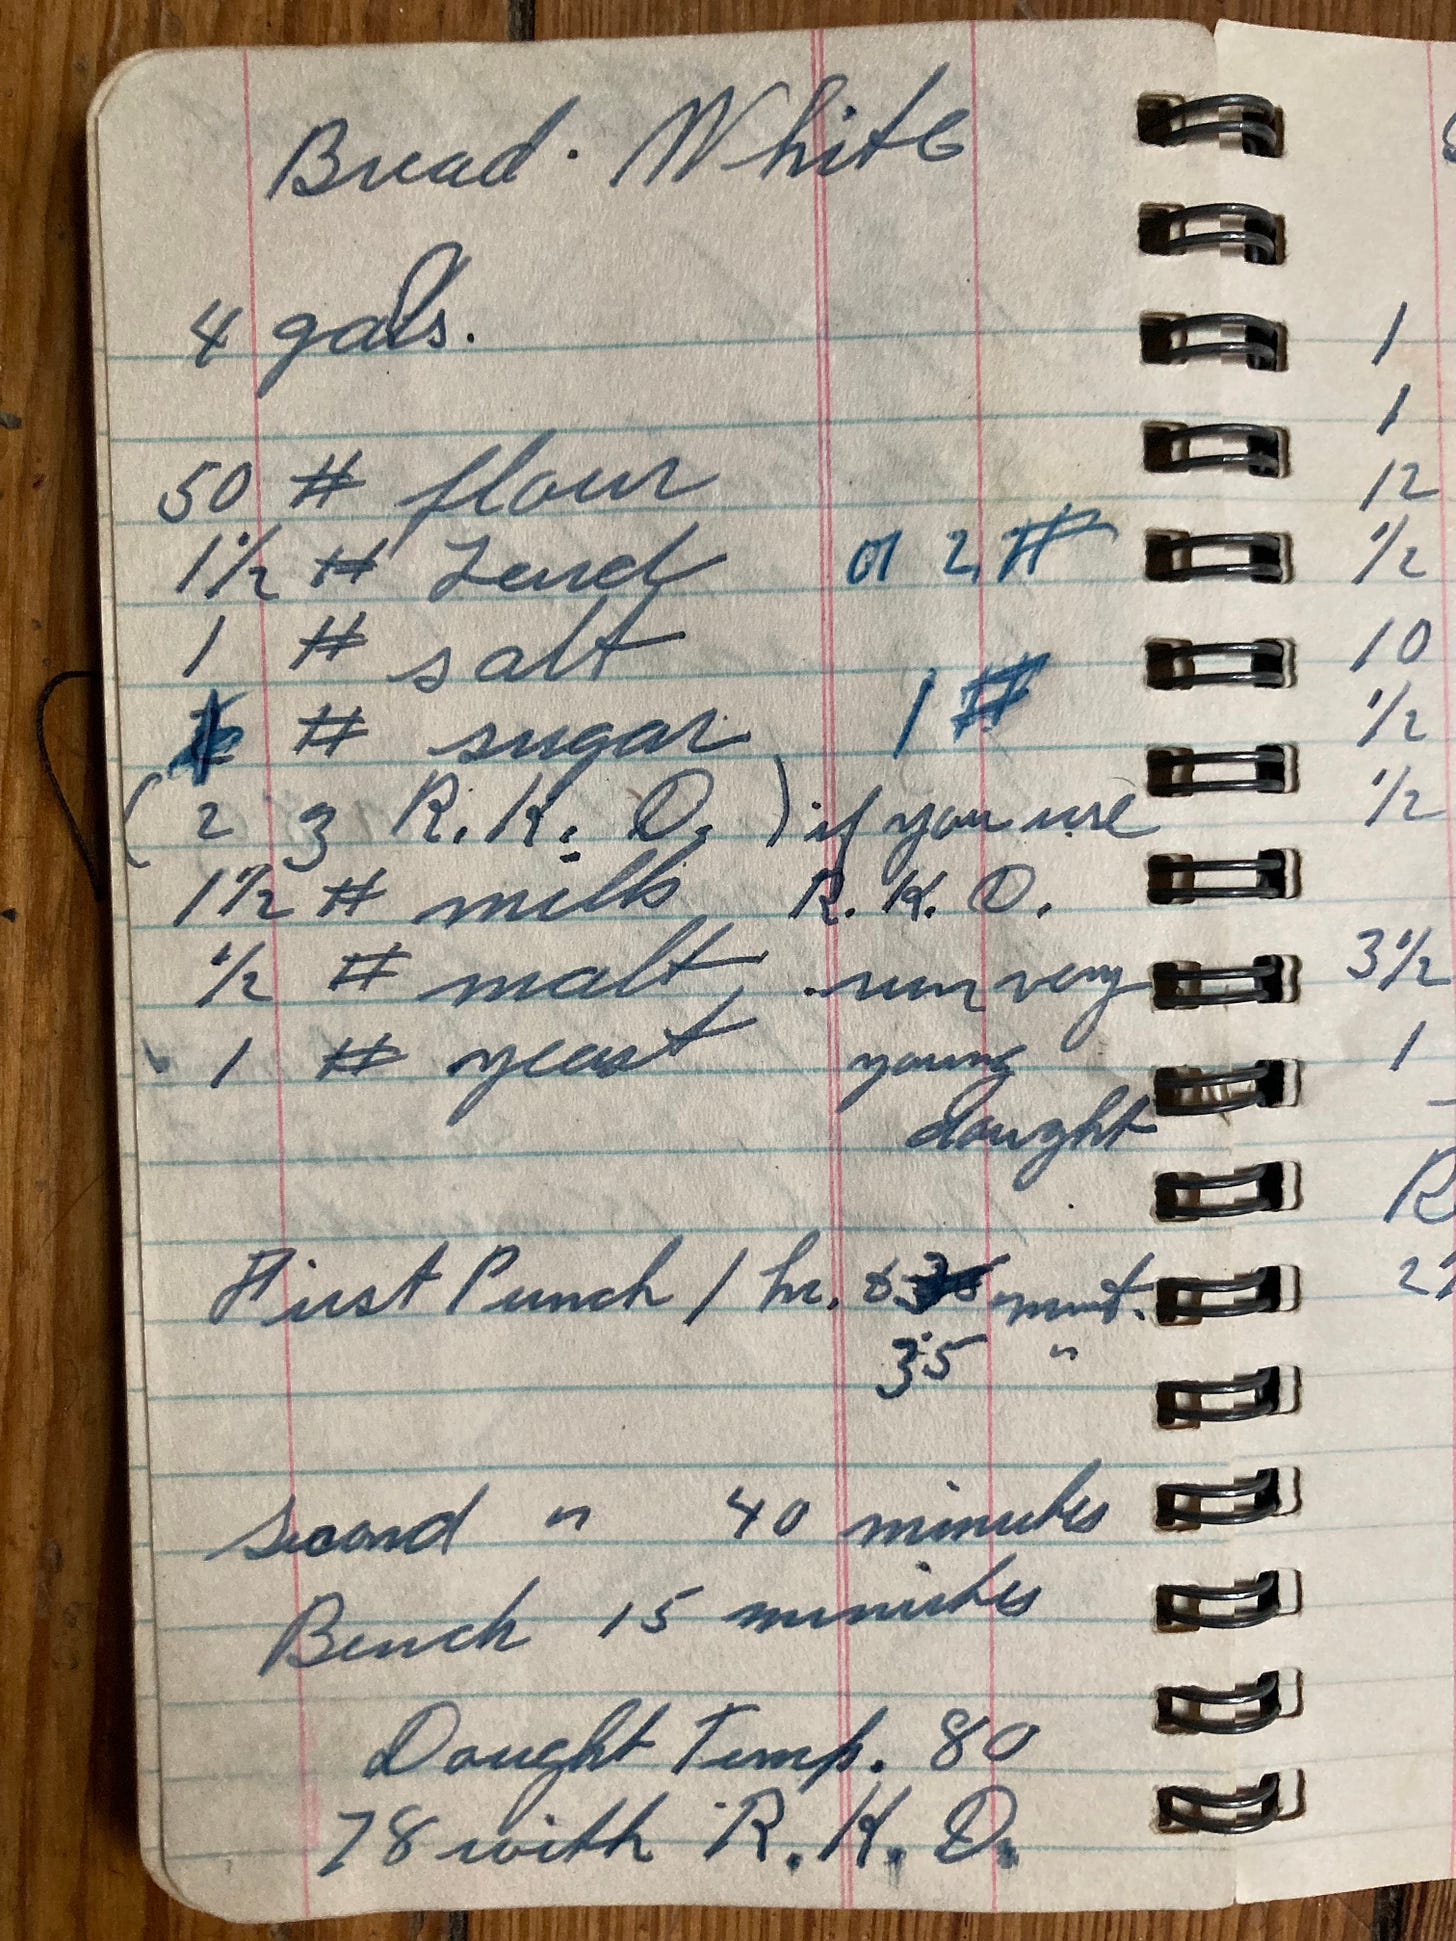 Bread. White
4 gals.
50 # flour
1 1/2 # Lard or 2 #
1 # salt
# sugar 1 #
( 2 ʒ R. K. O. ) if you use
1 1/2 # milk R. K. O.
1/2 # malt, run very
1 # yeast young
dought
First Punch 1 hr. & minut.
35 "
second " 40 minutes
Bench 15 minutes
Dought Temp. 80
78 with R. K. O.
1
1
12
1/2
10
1/2
1/2
3 1/2
1
R